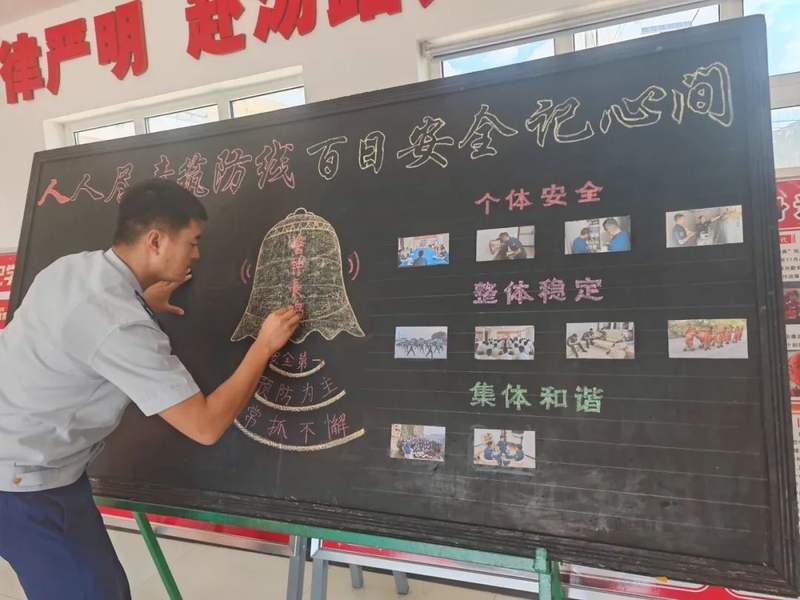 律严明 赴汤蹈
人人尽责筑防线 百日安全记心间
警钟长
安全第一
预防为主
常抓不懈
个体安全
整体稳定
集体和谐